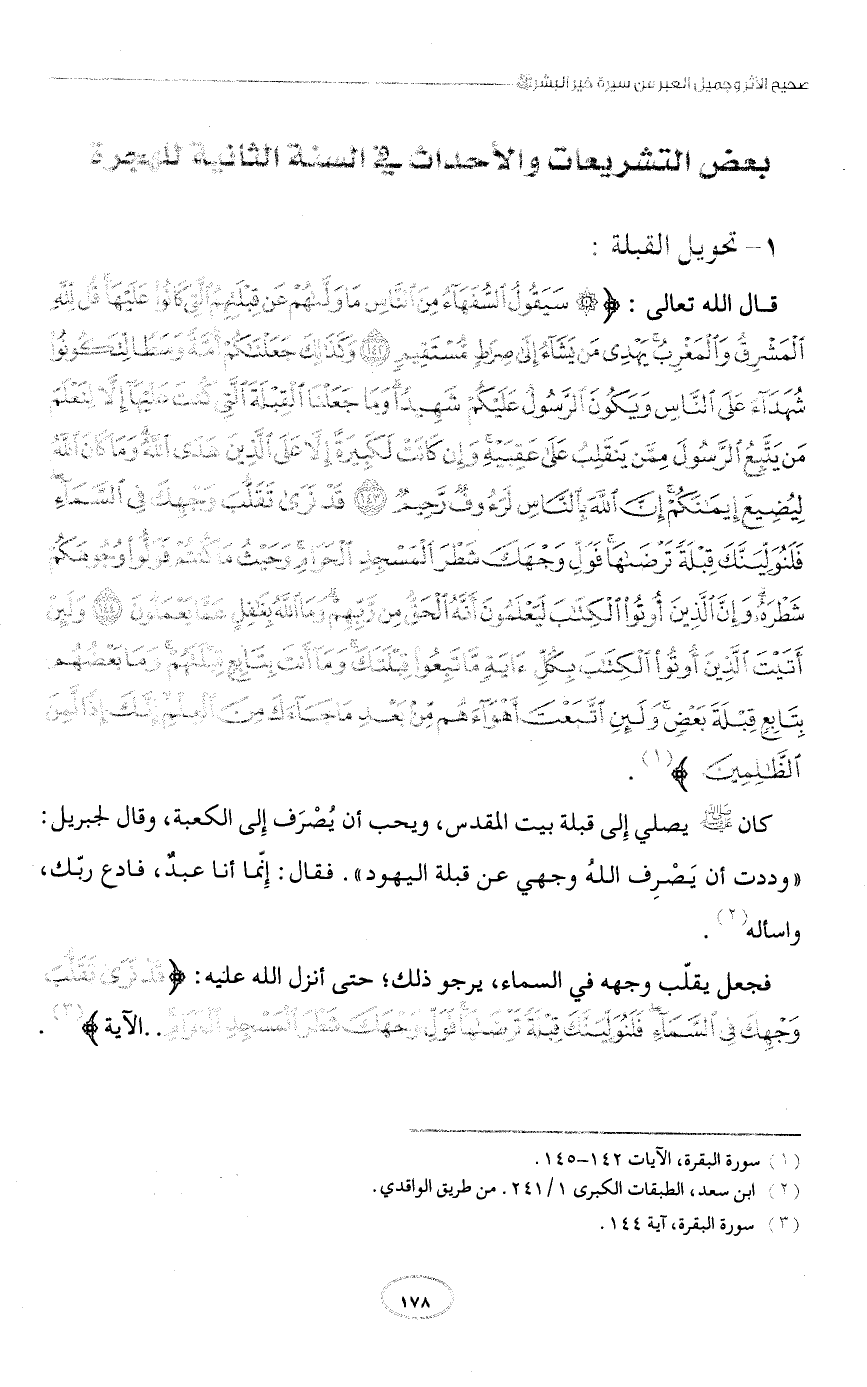 صحيح الأثر وجميل العبر من سيرة خير البشر ﷺ
بعض التشريعات والأحداث في السنة الثانية للهجرة
١- تحويل القبلة :
قال الله تعالى : ﴿ ۞ سَيَقُولُ ٱلسُّفَهَآءُ مِنَ ٱلنَّاسِ مَا وَلَّىٰهُمْ عَن قِبْلَتِهِمُ ٱلَّتِى كَانُوا۟ عَلَيْهَا ۚ قُل لِّلَّهِ
ٱلْمَشْرِقُ وَٱلْمَغْرِبُ ۚ يَهْدِى مَن يَشَآءُ إِلَىٰ صِرَٰطٍ مُّسْتَقِيمٍ ١٤٢ وَكَذَٰلِكَ جَعَلْنَٰكُمْ أُمَّةً وَسَطًا لِّتَكُونُوا۟
شُهَدَآءَ عَلَى ٱلنَّاسِ وَيَكُونَ ٱلرَّسُولُ عَلَيْكُمْ شَهِيدًا ۗ وَمَا جَعَلْنَا ٱلْقِبْلَةَ ٱلَّتِى كُنتَ عَلَيْهَآ إِلَّا لِنَعْلَمَ
مَن يَتَّبِعُ ٱلرَّسُولَ مِمَّن يَنقَلِبُ عَلَىٰ عَقِبَيْهِ ۚ وَإِن كَانَتْ لَكَبِيرَةً إِلَّا عَلَى ٱلَّذِينَ هَدَى ٱللَّهُ ۗ وَمَا كَانَ ٱللَّهُ
لِيُضِيعَ إِيمَٰنَكُمْ ۚ إِنَّ ٱللَّهَ بِٱلنَّاسِ لَرَءُوفٌ رَّحِيمٌ ١٤٣ قَدْ نَرَىٰ تَقَلُّبَ وَجْهِكَ فِى ٱلسَّمَآءِ ۖ
فَلَنُوَلِّيَنَّكَ قِبْلَةً تَرْضَىٰهَا ۚ فَوَلِّ وَجْهَكَ شَطْرَ ٱلْمَسْجِدِ ٱلْحَرَامِ ۚ وَحَيْثُ مَا كُنتُمْ فَوَلُّوا۟ وُجُوهَكُمْ
شَطْرَهُۥ ۗ وَإِنَّ ٱلَّذِينَ أُوتُوا۟ ٱلْكِتَٰبَ لَيَعْلَمُونَ أَنَّهُ ٱلْحَقُّ مِن رَّبِّهِمْ ۗ وَمَا ٱللَّهُ بِغَٰفِلٍ عَمَّا يَعْمَلُونَ ١٤٤ وَلَئِنْ
أَتَيْتَ ٱلَّذِينَ أُوتُوا۟ ٱلْكِتَٰبَ بِكُلِّ ءَايَةٍ مَّا تَبِعُوا۟ قِبْلَتَكَ ۚ وَمَآ أَنتَ بِتَابِعٍ قِبْلَتَهُمْ ۚ وَمَا بَعْضُهُم
بِتَابِعٍ قِبْلَةَ بَعْضٍ ۚ وَلَئِنِ ٱتَّبَعْتَ أَهْوَآءَهُم مِّنۢ بَعْدِ مَا جَآءَكَ مِنَ ٱلْعِلْمِ ۙ إِنَّكَ إِذًا لَّمِنَ
ٱلظَّٰلِمِينَ ﴾ (١) .
كان ﷺ يصلي إلى قبلة بيت المقدس، ويحب أن يُصْرَف إلى الكعبة، وقال لجبريل:
«وددت أن يَصْرِف اللهُ وجهي عن قبلة اليهود». فقال: إنّما أنا عبدٌ، فادع ربّك،
واسأله (٢) .
فجعل يقلّب وجهه في السماء، يرجو ذلك؛ حتى أنزل الله عليه: ﴿ قَدْ نَرَىٰ تَقَلُّبَ
وَجْهِكَ فِى ٱلسَّمَآءِ ۖ فَلَنُوَلِّيَنَّكَ قِبْلَةً تَرْضَىٰهَا ۚ فَوَلِّ وَجْهَكَ شَطْرَ ٱلْمَسْجِدِ ٱلْحَرَامِ ۚ ..الآية ﴾ (٣) .
(١) سورة البقرة، الآيات ١٤٢–١٤٥ .
(٢) ابن سعد، الطبقات الكبرى ١/ ٢٤١ . من طريق الواقدي.
(٣) سورة البقرة، آية ١٤٤ .
١٧٨